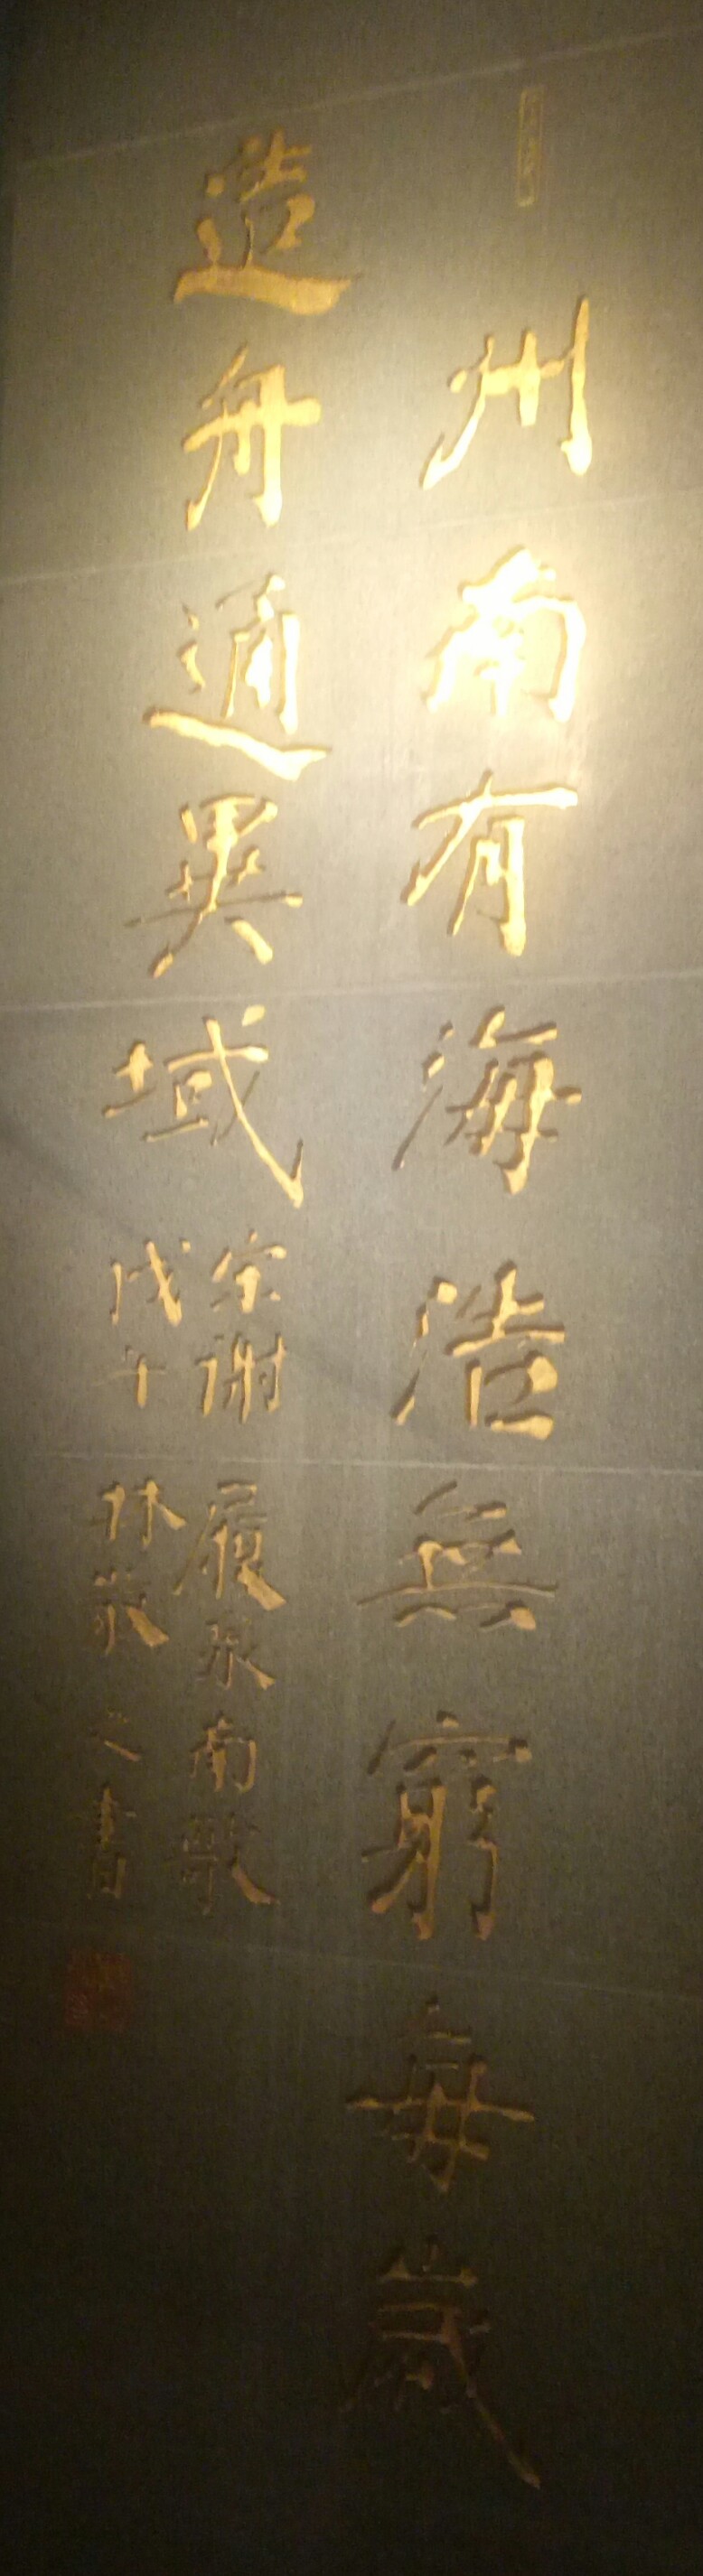 州南有海浩無窮每歲
造舟通異域
宋謝履泉南歌
戊午林嵗之書